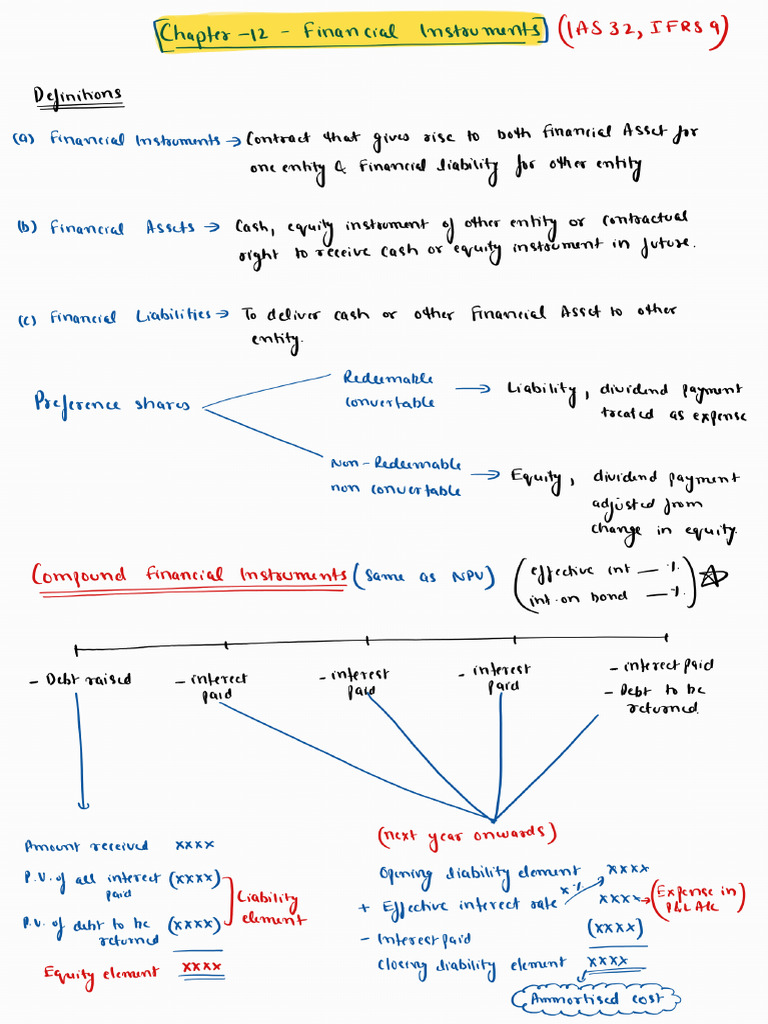 Chapter-12 - Financial Instruments (IAS 32, IFRS 9)
Definitions
(a) Financial Instruments → Contract that gives rise to both Financial Asset for
one entity & Financial liability for other entity
(b) Financial Assets → Cash, equity instrument of other entity or contractual
right to receive cash or equity instrument in future.
(c) Financial Liabilities → To deliver cash or other Financial Asset to other
entity.
Preference shares
Redeemable
convertable
→ Liability, dividend payment
treated as expense
Non-Redeemable
non convertable
→ Equity, dividend payment
adjusted from
change in equity.
Compound Financial Instruments (same as NPV)
(effective int — %.
int. on bond — %.)
- Debt raised
- interect
paid
- interest
paid
- interest
paid
- interect paid
- Debt to be
returned.
Amount received xxxx
P.V. of all interect (xxxx)
paid
P.V. of debt to be (xxxx)
returned
Liability
element
Equity element xxxx
(next year onwards)
Opening liability element xxxx
x %
+ Effective interect rate xxxx → (Expense in
P&L A/c)
- Interect paid (xxxx)
Closing liability element xxxx
Ammortised cost